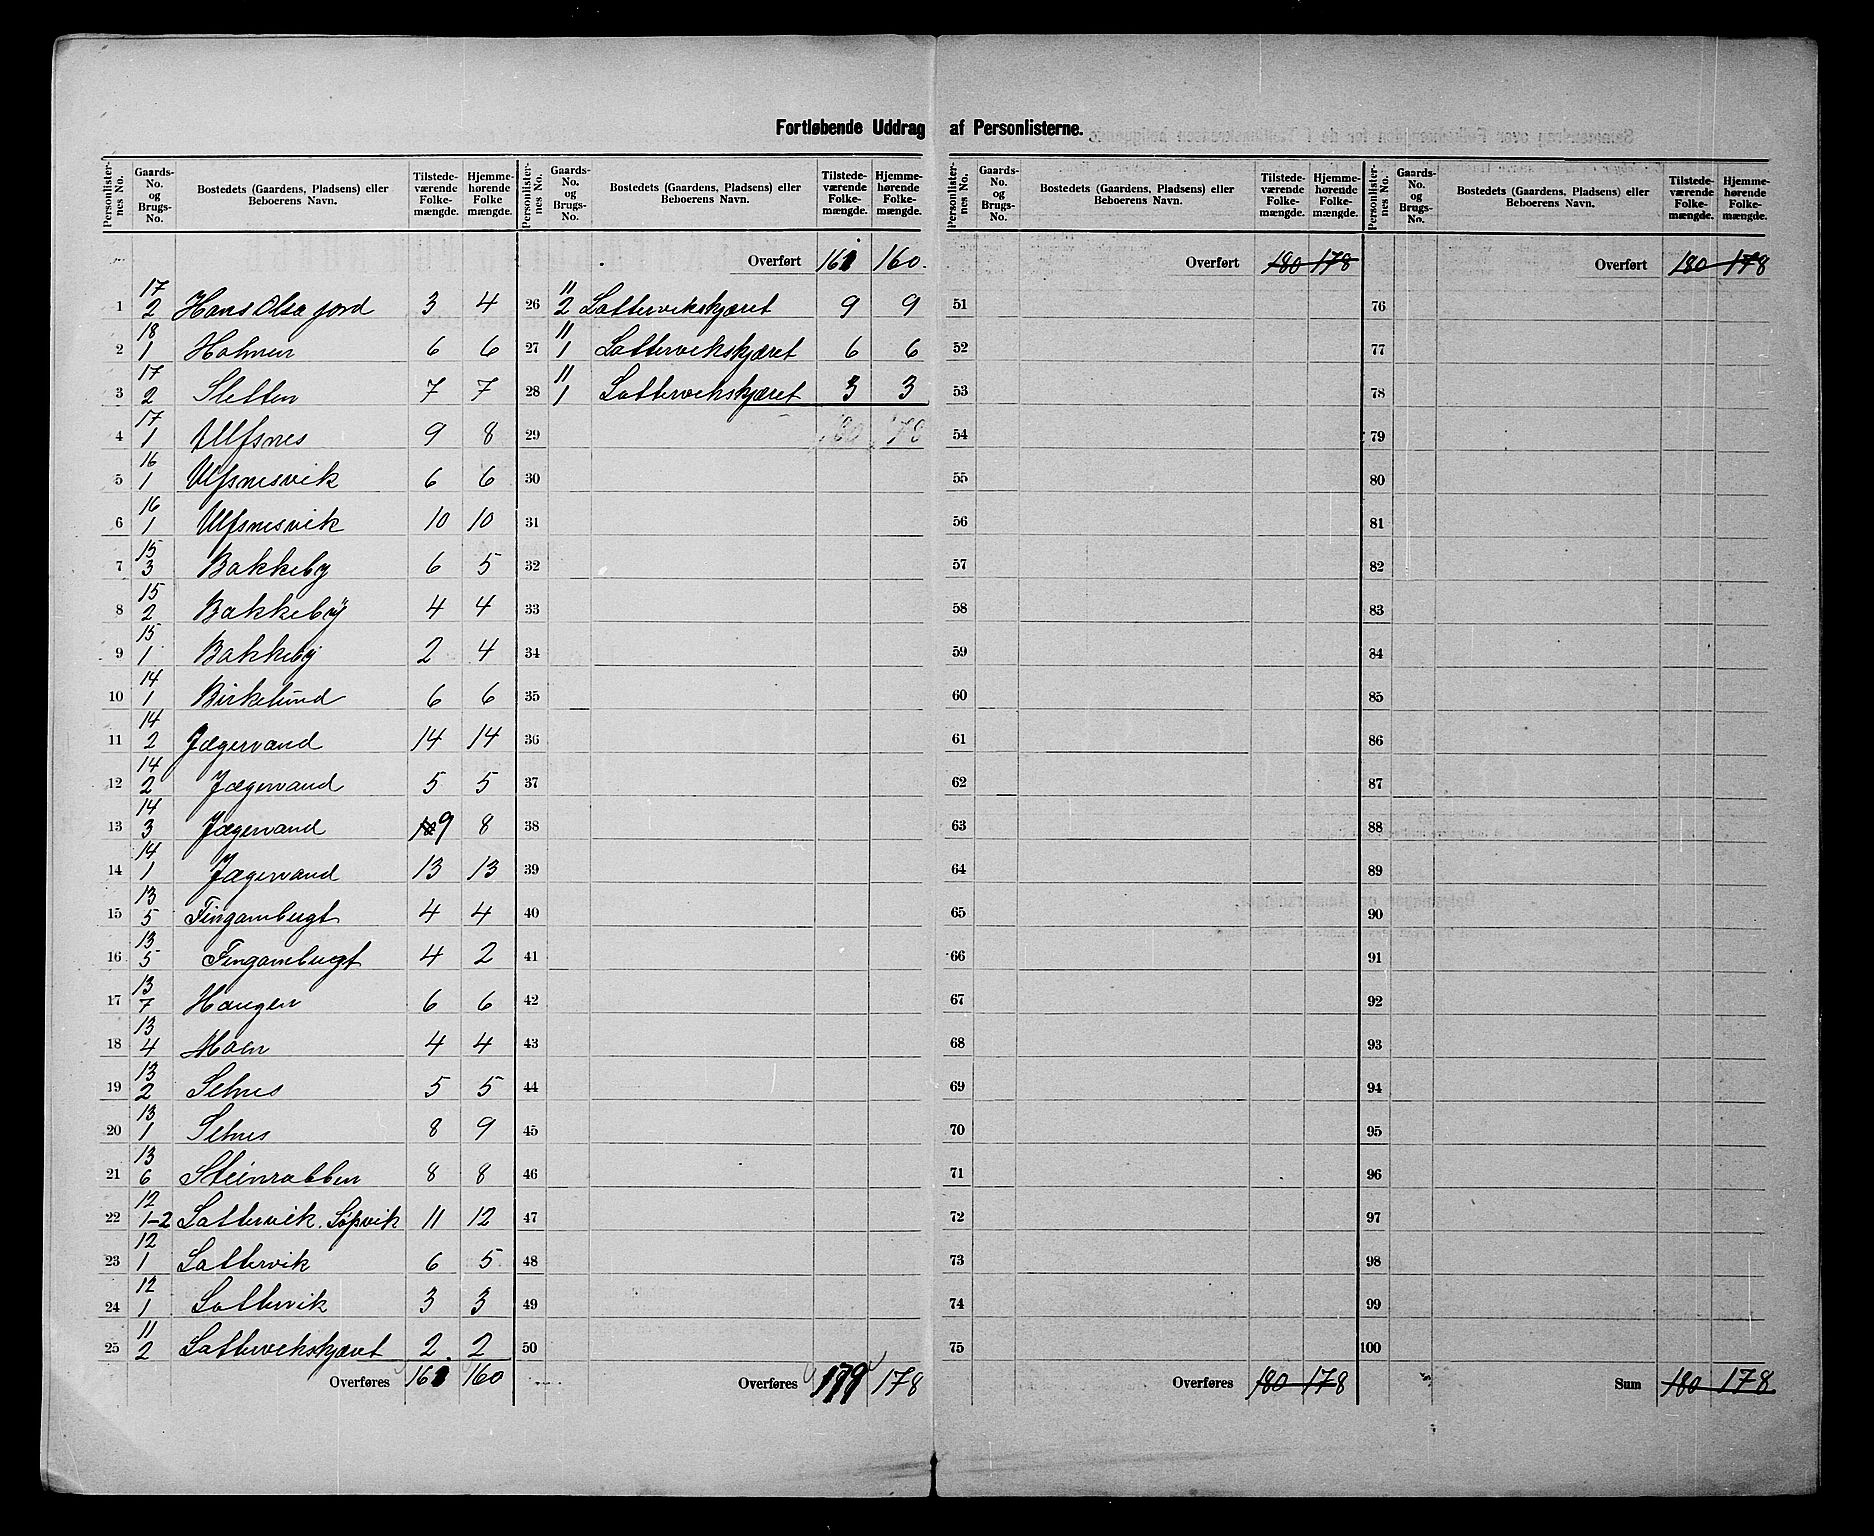 Fortløbende Uddrag af Personlisterne.
Personlisternes No. | Gaards-No. og Brugs-No. | Bostedets (Gaardens, Pladsens) eller Beboerens Navn. | Tilstedeværende Folkemængde. | Hjemmehørende Folke mængde.
1 | 17 2 | Hans Olsa fjord | 3 | 4
2 | 18 1 | Holmen | 6 | 6
3 | 17 2 | Sletten | 7 | 7
4 | 17 1 | Ulfsnes | 9 | 8
5 | 16 1 | Ulfsnesvik | 6 | 6
6 | 16 1 | Ulfsnesvik | 10 | 10
7 | 15 3 | Bakkeby | 6 | 5
8 | 15 2 | Bakkeby | 4 | 4
9 | 15 1 | Bakkeby | 2 | 4
10 | 14 1 | Birkelund | 6 | 6
11 | 14 2 | Jægervand | 14 | 14
12 | 14 2 | Jægervand | 5 | 5
13 | 14 3 | Jægervand | 9 | 8
14 | 14 1 | Jægervand | 13 | 13
15 | 13 5 | Fingambugt | 4 | 4
16 | 13 5 | Fingambugt | 4 | 2
17 | 13 7 | Haugen | 6 | 6
18 | 13 4 | Moen | 4 | 4
19 | 13 2 | Selnes | 5 | 5
20 | 13 1 | Selnes | 8 | 9
21 | 13 6 | Steinrabben | 8 | 8
22 | 12 1-2 | Lattervik. Løpvik | 11 | 12
23 | 12 1 | Lattervik | 6 | 5
24 | 12 1 | Lattervik | 3 | 3
25 | 11 2 | Lattervikskjæret | 2 | 2
Overføres | 161 | 160
Personlisternes No. | Gaards-No. og Brugs-No. | Bostedets (Gaardens, Pladsens) eller Beboerens Navn. | Tilstedeværende Folkemængde. | Hjemmehørende Folkemængde.
Overført | 161 | 160.
26 | 11 2 | Lattervikskjæret | 9 | 9
27 | 11 1 | Lattervikskjæret | 6 | 6
28 | 11 1 | Lattervikskjæret | 3 | 3
29 | 180 | 178
30
31
32
33
34
35
36
37
38
39
40
41
42
43
44
45
46
47
48
49
50
Overføres | 179 | 178
Personlisternes No. | Gaards-No. og Brugs-No. | Bostedets (Gaardens, Pladsens) eller Beboerens Navn. | Tilstedeværende Folkemængde. | Hjemmehørende Folkemængde.
Overført | 180 | 178
51
52
53
54
55
56
57
58
59
60
61
62
63
64
65
66
67
68
69
70
71
72
73
74
75
Overføres | 180 | 178
Personlisternes No. | Gaards-No. og Brugs-No. | Bostedets (Gaardens, Pladsens) eller Beboerens Navn. | Tilstedeværende Folkemængde. | Hjemmehørende Folkemængde.
Overført | 180 | 178
76
77
78
79
80
81
82
83
84
85
86
87
88
89
90
91
92
93
94
95
96
97
98
99
100
Sum | 180 | 178